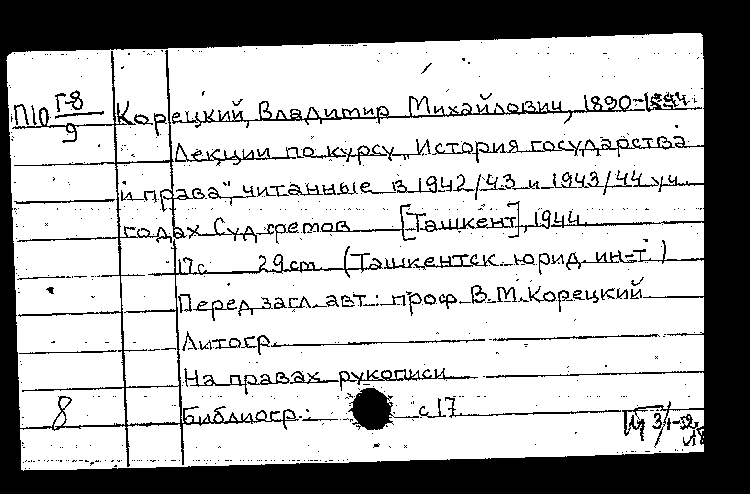 П10 Г-8/9 Корецкий, Владимир Михайлович, 1890-
Лекции по курсу „История государства
и права", читанные в 1942/43 и 1943/44 уч.
годах Суд фетов [Ташкент], 1944.
17с 29 cm (Ташкентск. юрид. ин-т.)
Перед загл. авт.: проф. В.М. Корецкий
Литогр.
На правах рукописи
8 Библиогр.: с 17